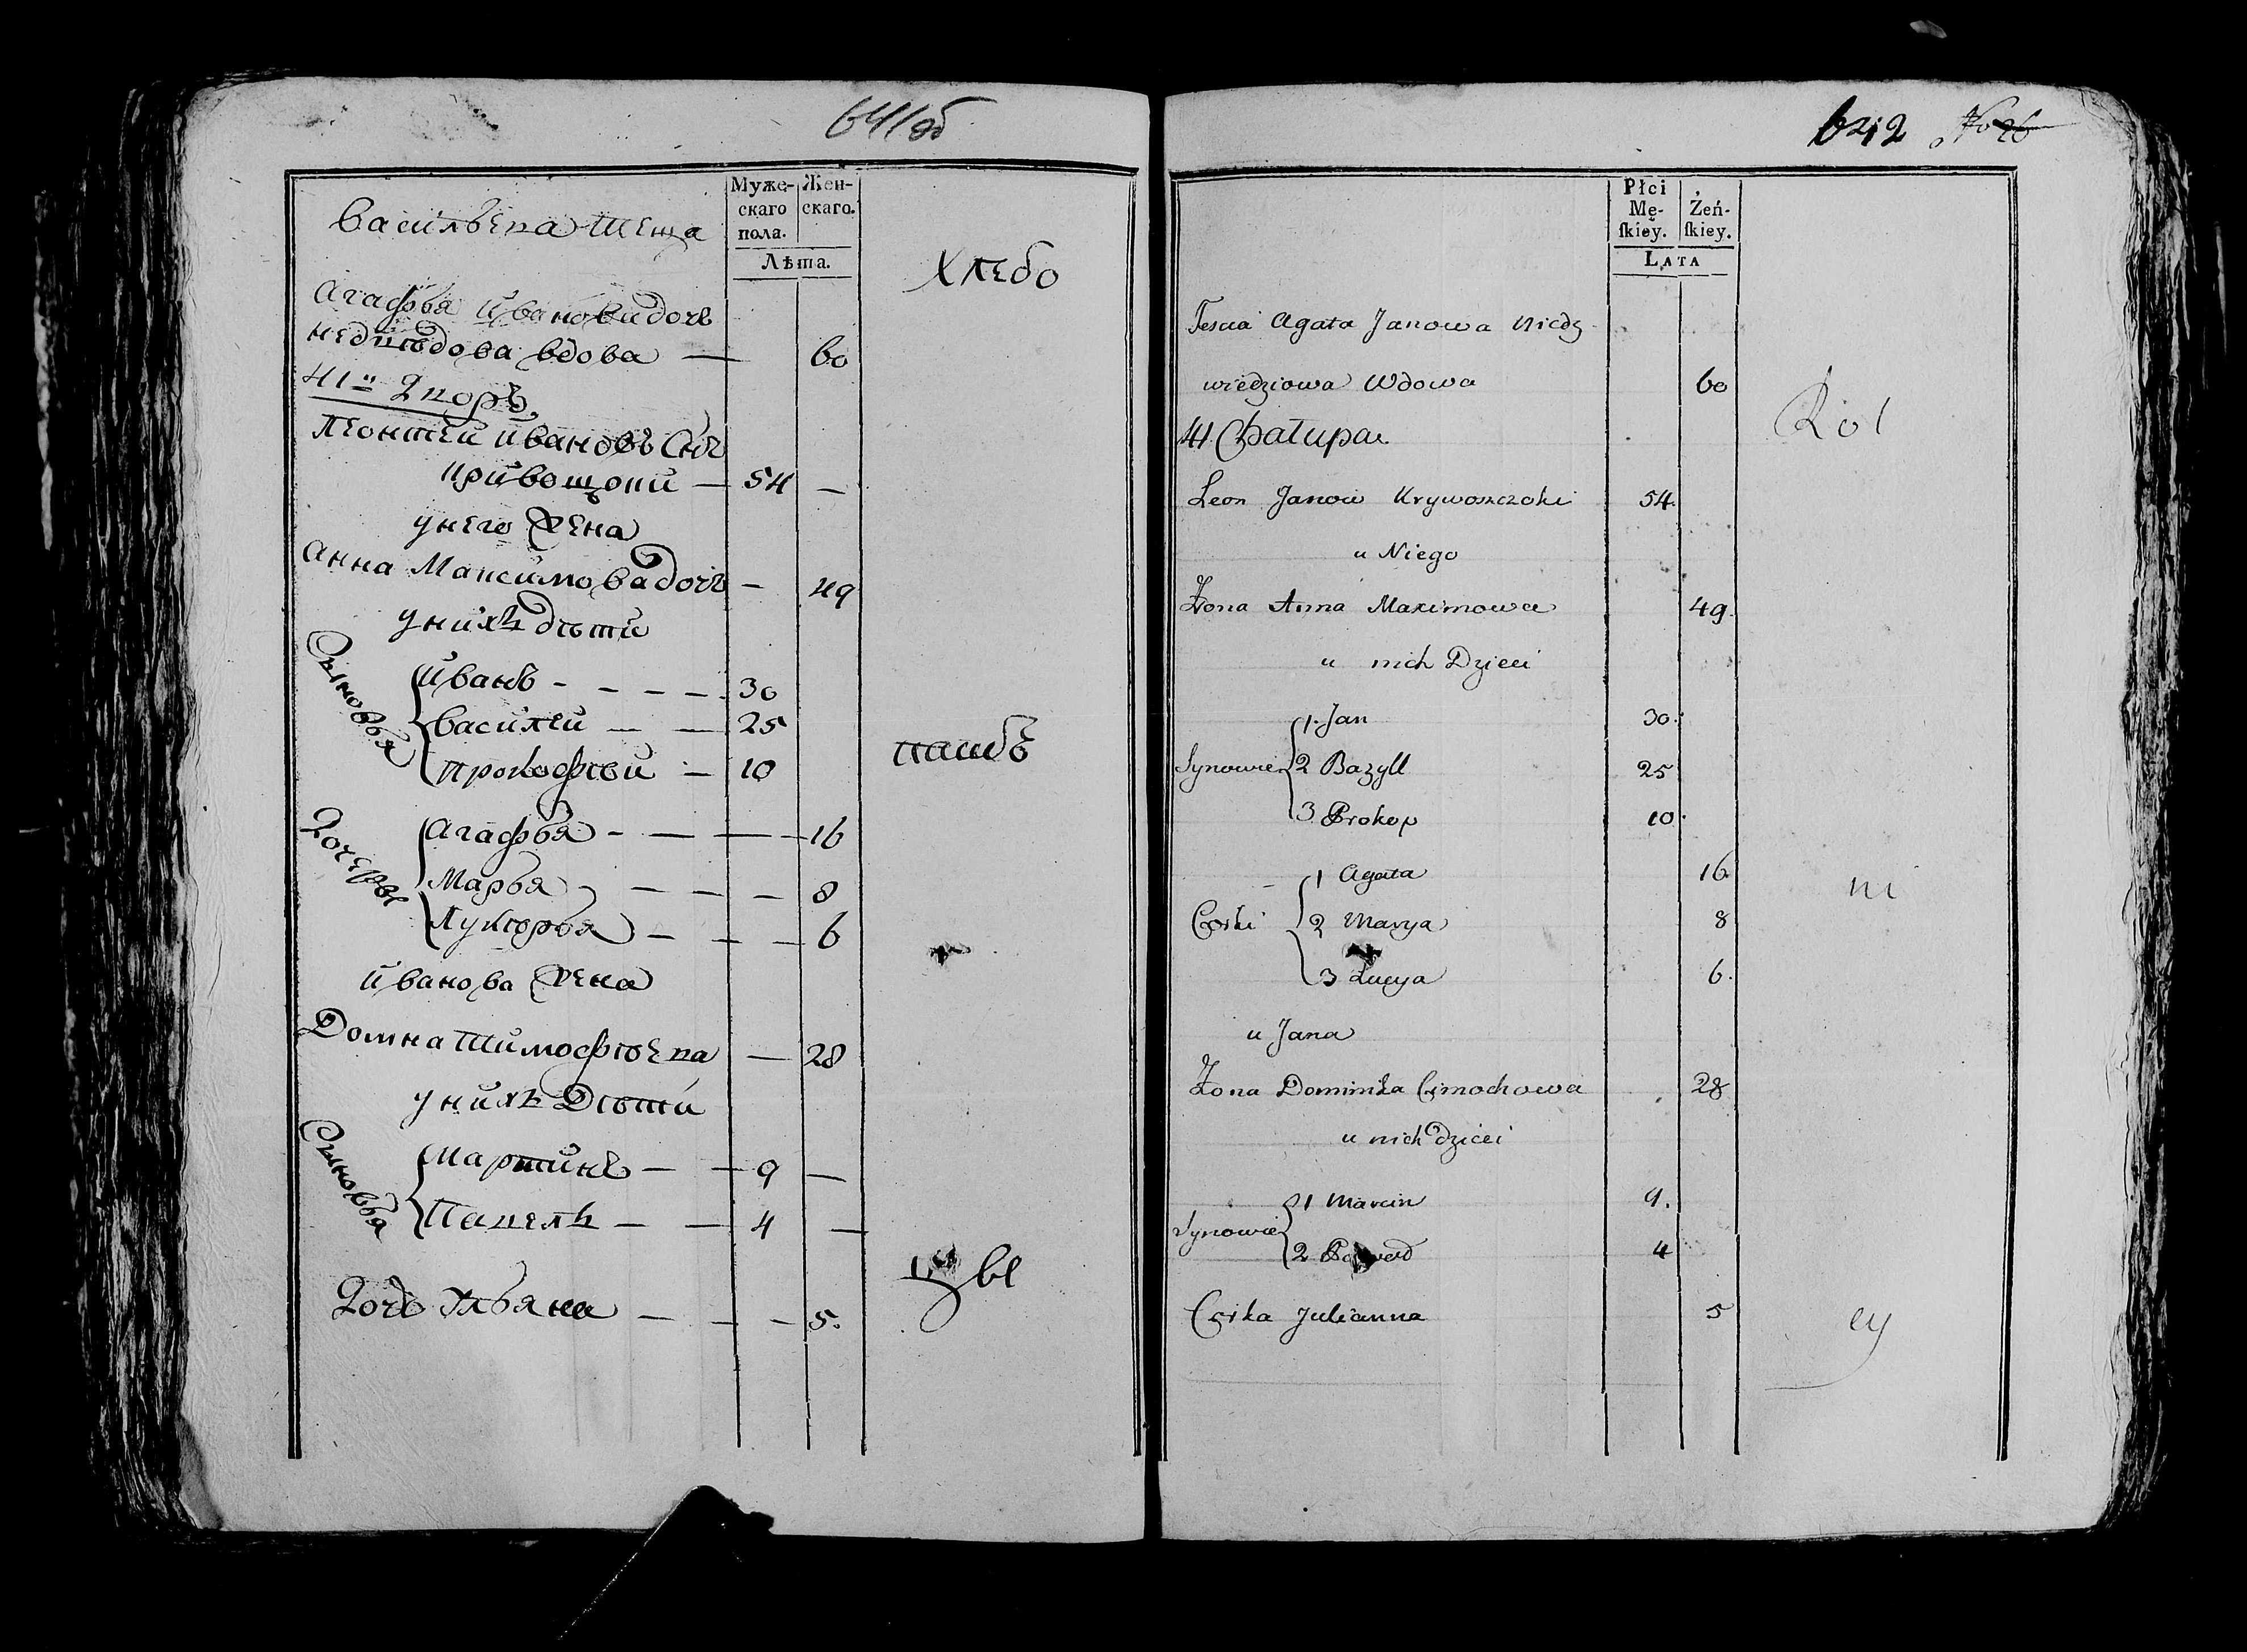 641об
Муже-
скаго
пола.
Жен-
скаго.
Лѣта.
васильева теща
хлебо
агафья ивановидочь
недведова вдова — 60
41й дворъ
леонтей ивановъ Снъ
кривощоки — 54 —
унего жена
анна Максимовадочь — 49
унихъ дѣти
Сыновья
иванъ - - - - - 30
василей — — 25
прокофей — 10
пашъ
Дочеры
агафья - — — — 16
Марья — — — 8
лукерья — — — 6
иванова жена
Домна тимофеева — 28
унихъ Дѣти
Сыновья
мартинъ — — 9 —
Павелъ — — 4 —
цы
Дочь ульяна — — — 5.
642
Płci
Mę-
ſkiey.
Żeń-
ſkiey.
Lata
Tescia Agata Janowa Niedz
wiedziowa Wdowa 60
Rol
41 Chałupa
Leon Janow Krywoszczoki 54.
u Niego
Żona Anna Maximowa 49.
u nich Dzieci
Synowie
1. Jan 30.
2 Bazyll 25
3 Prokop 10.
Corki
1 Agata 16.
2 Marya 8
3 Lucya 6.
ni
u Jana
Żona Dominika Cimochowa 28
u nich dzieci
Synowie
1 Marcin 9.
2 4
Corka Julianna 5
cy